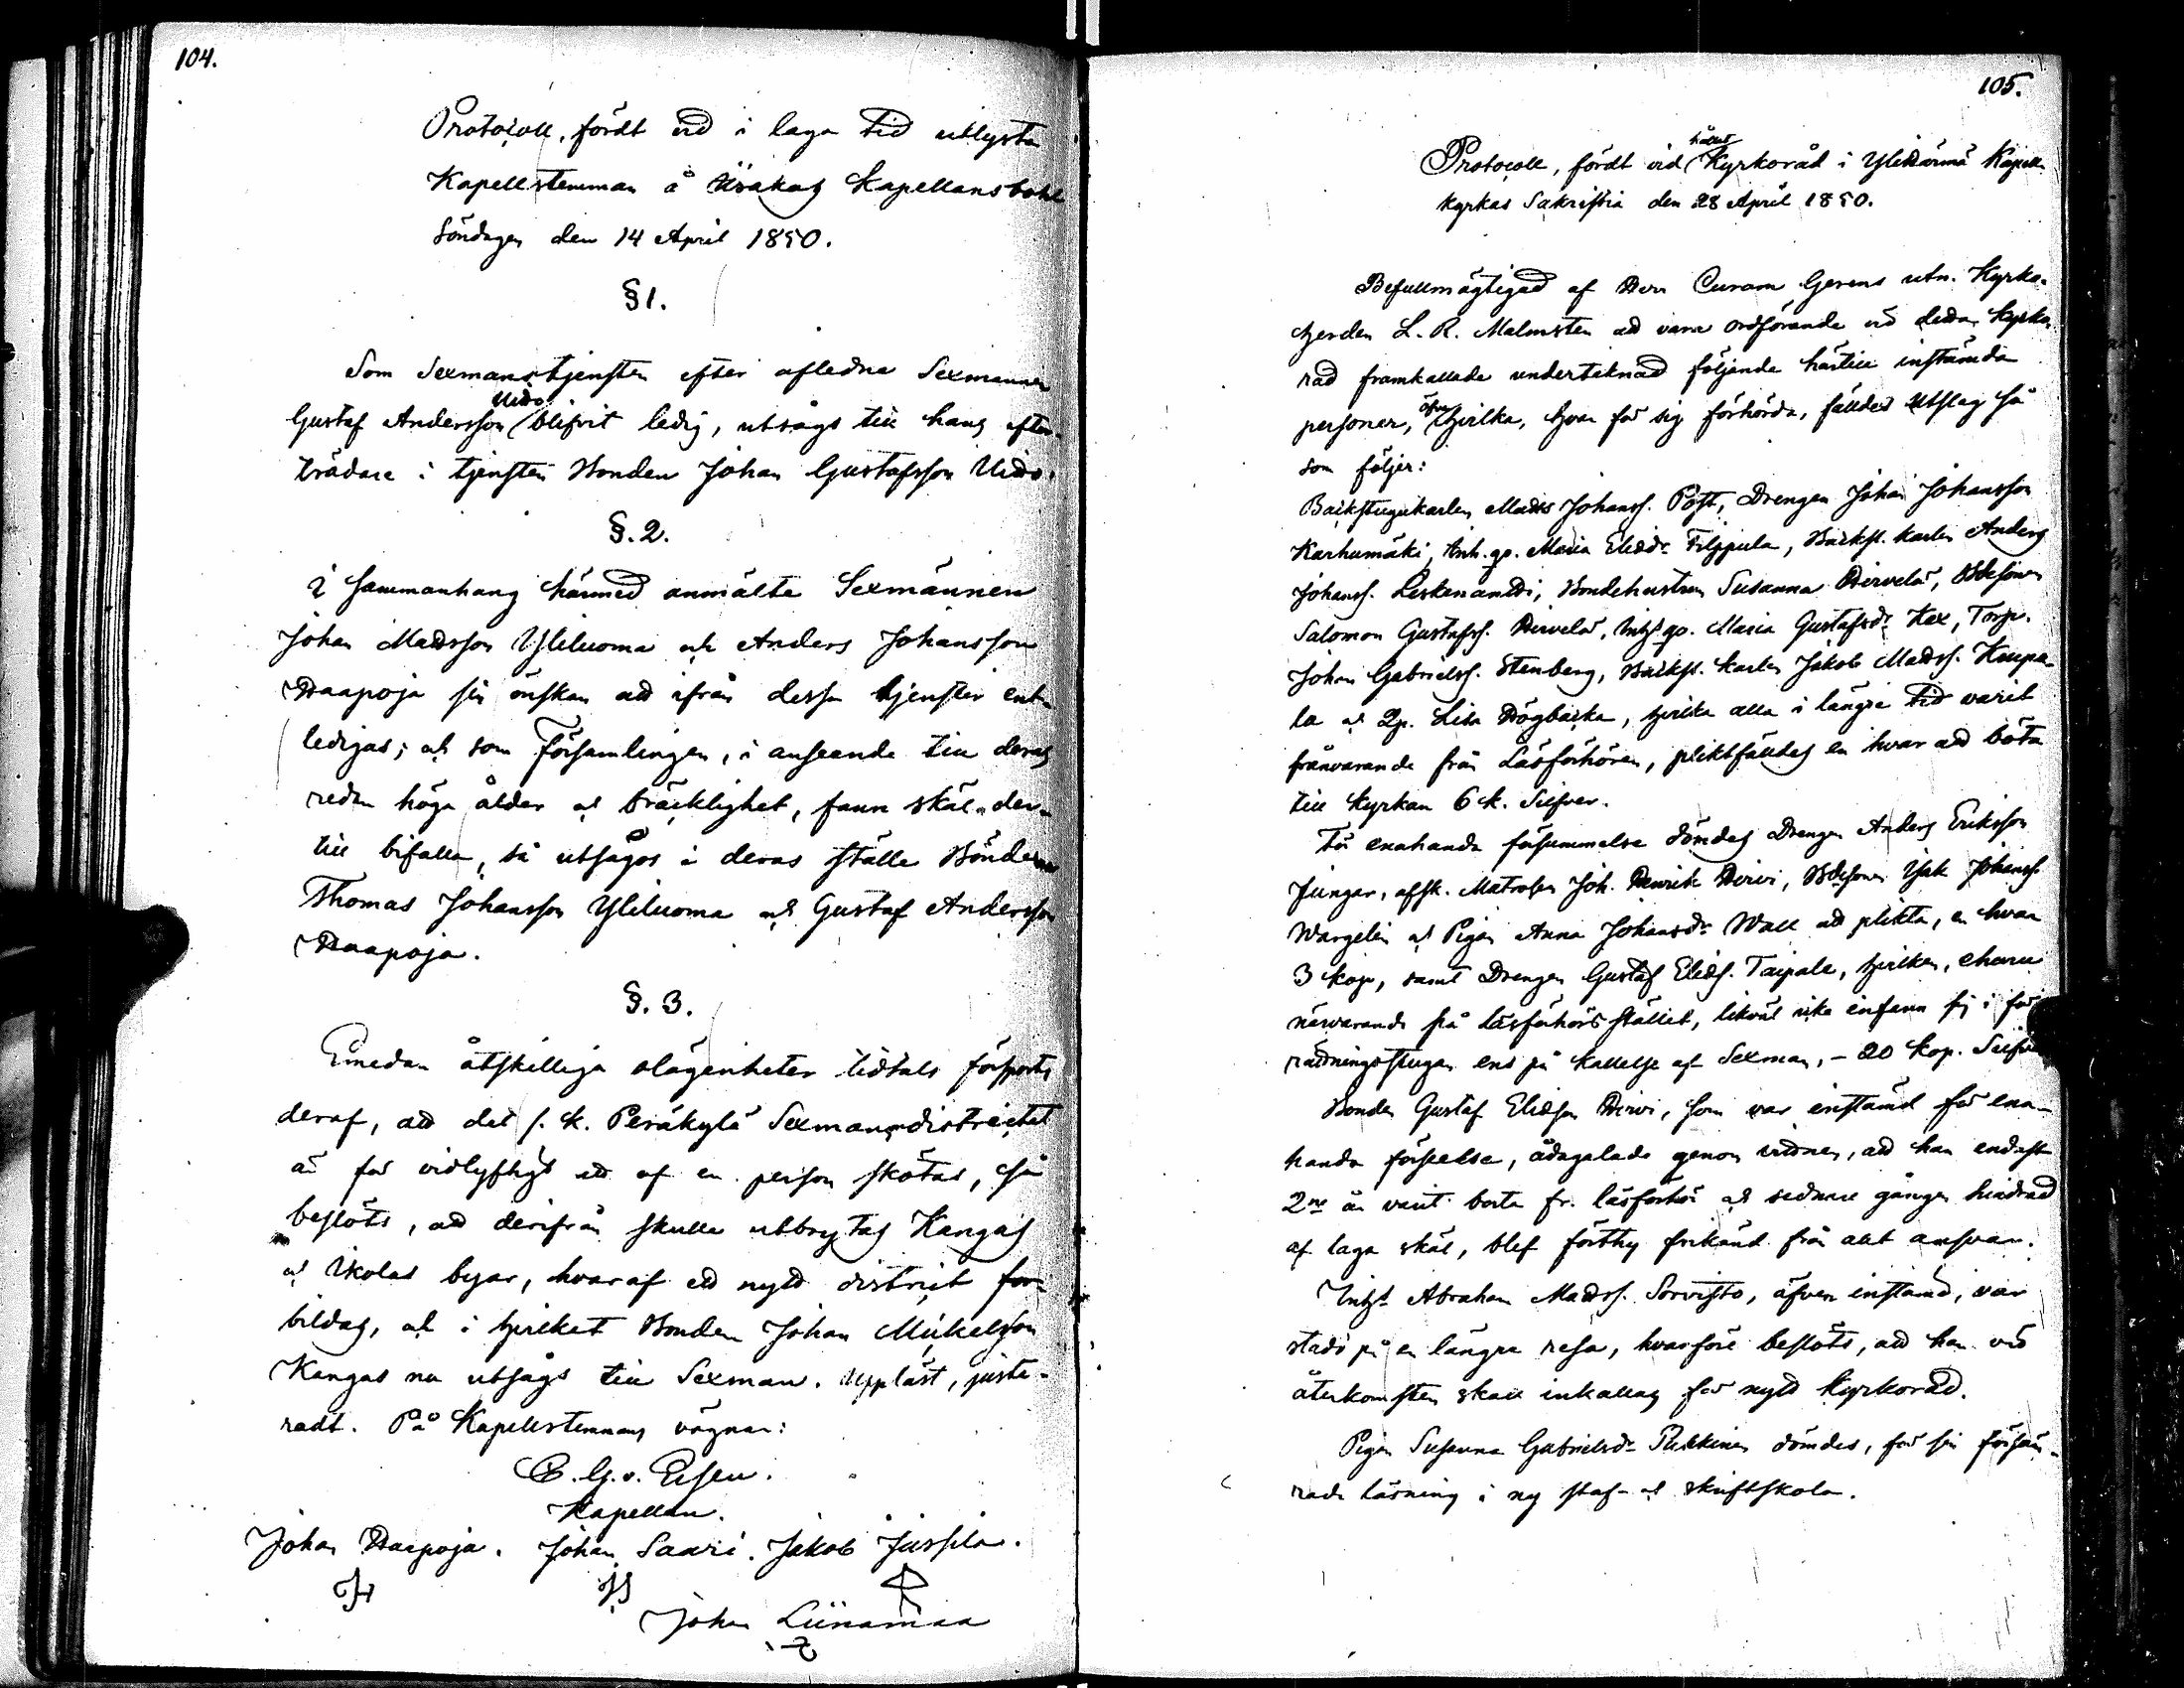 104.
Protocoll, fördt vid i laga tid utlysta
Kapellstemman å Kapellansbohl
Söndagen den 14 April 1850.
§1.
Som Sexmanstjensten efter afledne Sexmannen
Gustaf Andersson Uido blifvit ledig, utsågs till hans efter-
trädare i tjensten Bonden Johan Gustafsson Uido.
§.2.
I sammanhang härmed anmälte Sexmännen
Johan Mattsson Yliluoma och Anders Johansson
Haapoja sin önskan att ifrån dessa tjenster ent-
ledigas; och som Församlingen, i anseende till deras
redan höga ålder och bräcklighet, fann skäl der-
till bifalla, så utsågos i deras ställe Bönderne
Thomas Johansson Yliluoma och Gustaf Andersson
Haapoja.
§.3.
Emedan åtskilliga olägenheter tidtals försports
deraf, att det s. k. Peräkylä Sexmansdistrictet
är för vidlyftigt att af en person skötas, så
beslöts, att derifrån skulle utbrytas Kangas
och Ikolas byar, hvaraf ett nytt district for-
bildas, och i hvilket Bonden Johan Mickelsson
Kangas nu utsågs till Sexman. Uppläst, juste-
radt. På Kapellstemmans vägnar:
C. G. v. Essen.
Kapellan.
Johan Haapoja. Johan Saari. Jakob Jussila.
Johan Liinamaa
105.
Protocoll, fördt vid hållet Kyrkoråd i Ylihärmä Kapell
kyrkas Sakristia den 28 April 1850.
Befullmägtigad af Herr Curam Gerens utn. Kyrko-
herden L. R. Malmsten att vara ordförande vid detta Kyrko-
råd framkallade undertecknad följande härtill instämda
personer, öfver hvilka, hvar för sig förhörda, fälldes utslag så
som följer:
Backstugukarlen Matts Johanss. Post, Drengen Johan Johansson
Karhumäki, Inh. qv. Maria Eliædr. Filppula, Backst. karlen Anders
Johanss. Leskenantti, Bondehustrun Susanna Hirvelä, Bdesonen
Salomon Gustafss. Hirvelä, Inhs qv. Maria Gustafsdr. Kax, Torp.
Johan Gabrielss. Stenberg, Backst. karlen Jakob Mattss. Knupa-
la och Qp. Lisa Högbacka, hvilka alla i längre tid varit
frånvarande från Läsförhören, pliktfälldes en hvar att böta
till Kyrkan 6 k. Silfver.
För enahanda försummelse dömdes Drengen Anders Eriksson
Jungar, afsk. Matrosen Joh. Henrik Hirvi, Bdesonen Isak Johanss.
Wargelin och Pigan Anna Johansdr. Wall att plikta, en hvar
3 kop, samt Drengen Gustaf Eliæs. Taipale, hvilken, ehuru
närvarande på läsförhörs stället, likväl icke infann sig i för
rättningsstugan ens på kallelse af Sexman, – 20 kop. Silfver
Bonden Gustaf Eliæson Hirvi, som var instämd för ena-
handa förseelse, ådagalade genom vittnen, att han endast
2ne år varit borta fr. läsförhör och sednare gången hindrad
af laga skäl, blef förthy frikänd från allt ansvar.
Inhs Abraham Mattss. Sorvisto, äfven instämd, var
stadd på en längre resa, hvarföre beslöts, att han vid
återkomsten skall inkallas för nytt Kyrkoråd.
Pigan Susanna Gabrielsdr. Pukkinen dömdes, för sin försäm-
rade läsning i ny staf- och skriftskola.